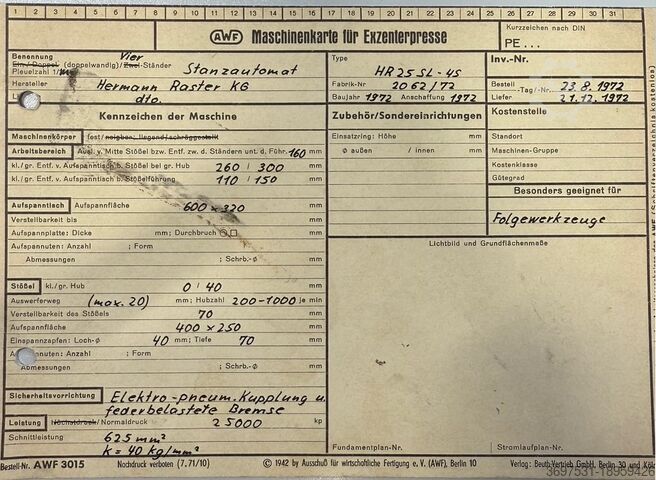 1 2 3 4 5 6 7 8 9 10 11 12 13 14 15 16 17 18 19 20 21 22 23 24 25 26 27 28 29 30 31
AWF Maschinenkarte für Exzenterpresse
Kurzzeichen nach DIN
PE...
Benennung Vier
Ein-/Doppel- (doppelwandig)/Zwei-Ständer Stanzautomat
Pleuelzahl 1/
Hersteller Hermann Raster KG
dto.
Type HR 25 SL-4S
Fabrik-Nr. 2062/72
Baujahr 1972 Anschaffung 1972
Inv.-Nr.
Bestell -Tag/-Nr. 23.8.1972
Liefer 21.12.1972
Kennzeichen der Maschine
Maschinenkörper fest/neigbar, liegend/schräggestellt
Arbeitsbereich Ausl. v. Mitte Stößel bzw. Entf. zw. d. Ständern unt. d. Führ. 160 mm
kl./gr. Entf. v. Aufspanntisch b. Stößel bei gr. Hub 260 / 300 mm
kl./gr. Entf. v. Aufspanntisch b. Stößelführung 110 / 150 mm
Aufspanntisch Aufspannfläche 600 x 320 mm
Verstellbarkeit bis mm
Aufspannplatte: Dicke mm; Durchbruch ○ □ mm
Aufspannuten: Anzahl ; Form
Abmessungen ; Schrb.-ø mm
Stößel kl./gr. Hub 0 / 40 mm
Auswerferweg (max. 20) mm; Hubzahl 200-1000 je min
Verstellbarkeit des Stößels 70 mm
Aufspannfläche 400 x 250 mm
Einspannzapfen: Loch-ø 40 mm; Tiefe 70 mm
nuten: Anzahl ; Form
Abmessungen ; Schrb.-ø mm
Sicherheitsvorrichtung Elektro-pneum. Kupplung u.
federbelastete Bremse
Leistung Höchstdruck/Normaldruck 25000 kp
Schnittleistung 625 mm²
k = 40 kg/mm²
Zubehör/Sondereinrichtungen
Einsatzring: Höhe mm
ø außen / innen mm
Kostenstelle
Standort
Maschinen-Gruppe
Kostenklasse
Gütegrad
Besonders geeignet für
Folgewerkzeuge
Lichtbild und Grundflächenmaße
Fundamentplan-Nr. Stromlaufplan-Nr.
Bestell-Nr. AWF 3015 Nachdruck verboten (7.71/10) © 1942 by Ausschuß für wirtschaftliche Fertigung e. V. (AWF), Berlin 10 Verlag: Beuth-Vertrieb GmbH, Berlin 30 und Köln
3697531-18959426